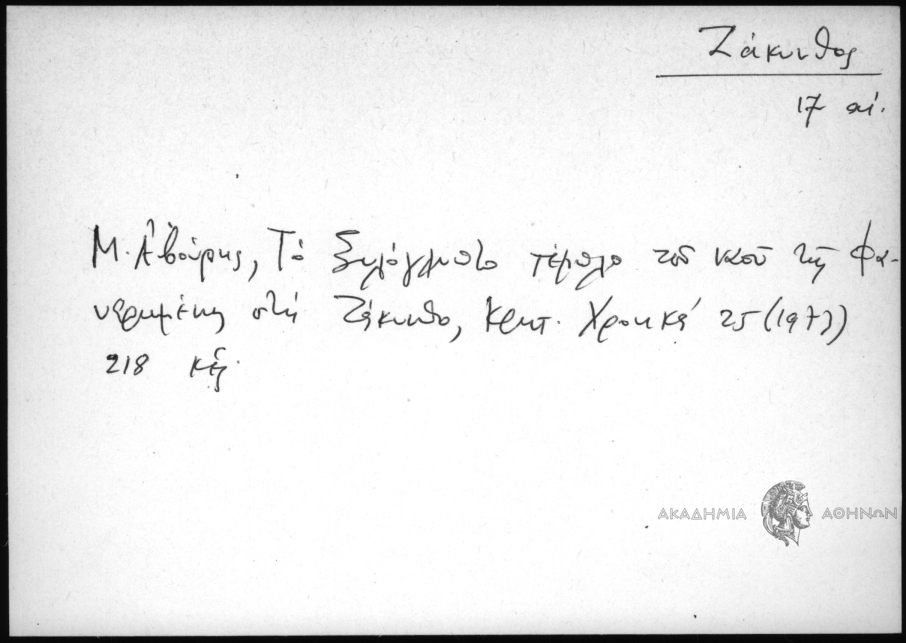 Ζάκυνθος
17 αἰ.
Μ. Ἀβούρης, Τὸ ξυλόγλυπτο τέμπλο τοῦ ναοῦ τῆς Φα-
νερωμένης στὴ Ζάκυνθο, Κρητ. Χρονικά 25 (1973)
218 κἑ.
ΑΚΑΔΗΜΙΑ ΑΘΗΝΩΝ